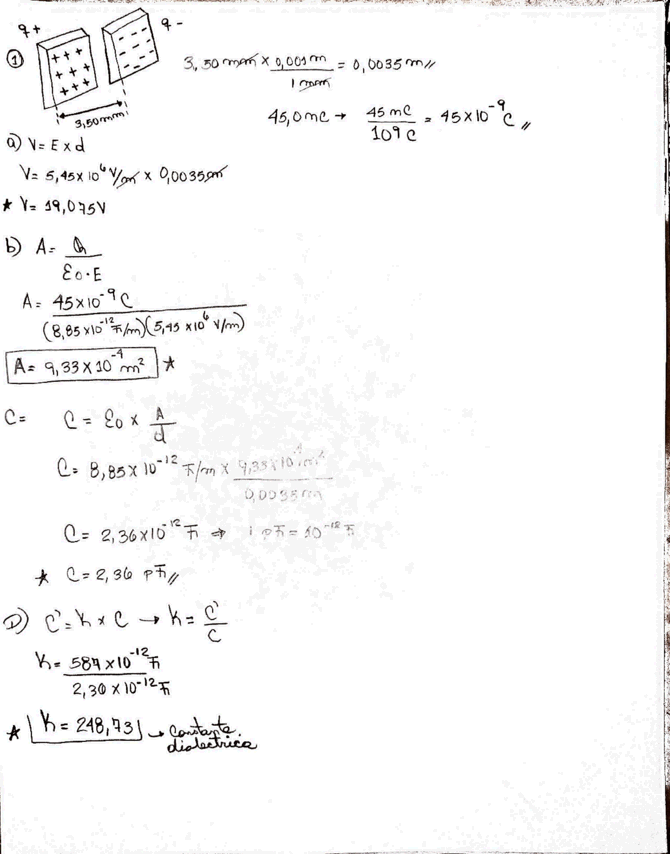 q+ q-
① 3,50 mm × 0,001 m / 1 mm = 0,0035 m //
+ + +
+ + +
+ + +
3,50 mm
45,0 nC → 45 nC / 10⁹ C = 45×10⁻⁹ C //
a) V = E x d
V = 5,45 x 10⁶ V/m x 0,0035 m
★ V = 19,075 V
b) A = Q / ε₀ · E
A = 45×10⁻⁹ C / (8,85×10⁻¹² F/m)(5,45×10⁶ V/m)
A = 9,33 × 10⁻⁴ m² ★
C= C = ε₀ × A / d
C = 8,85×10⁻¹² F/m × 9,33×10⁻⁴ m² / 0,0035 m
C = 2,36×10⁻¹² F ⇒ 1 pF = 10⁻¹² F
★ C = 2,36 pF //
D) C' = K × C → K = C' / C
K = 587 ×10⁻¹² F / 2,36 ×10⁻¹² F
★ K = 248,73 → constante
dialectrica